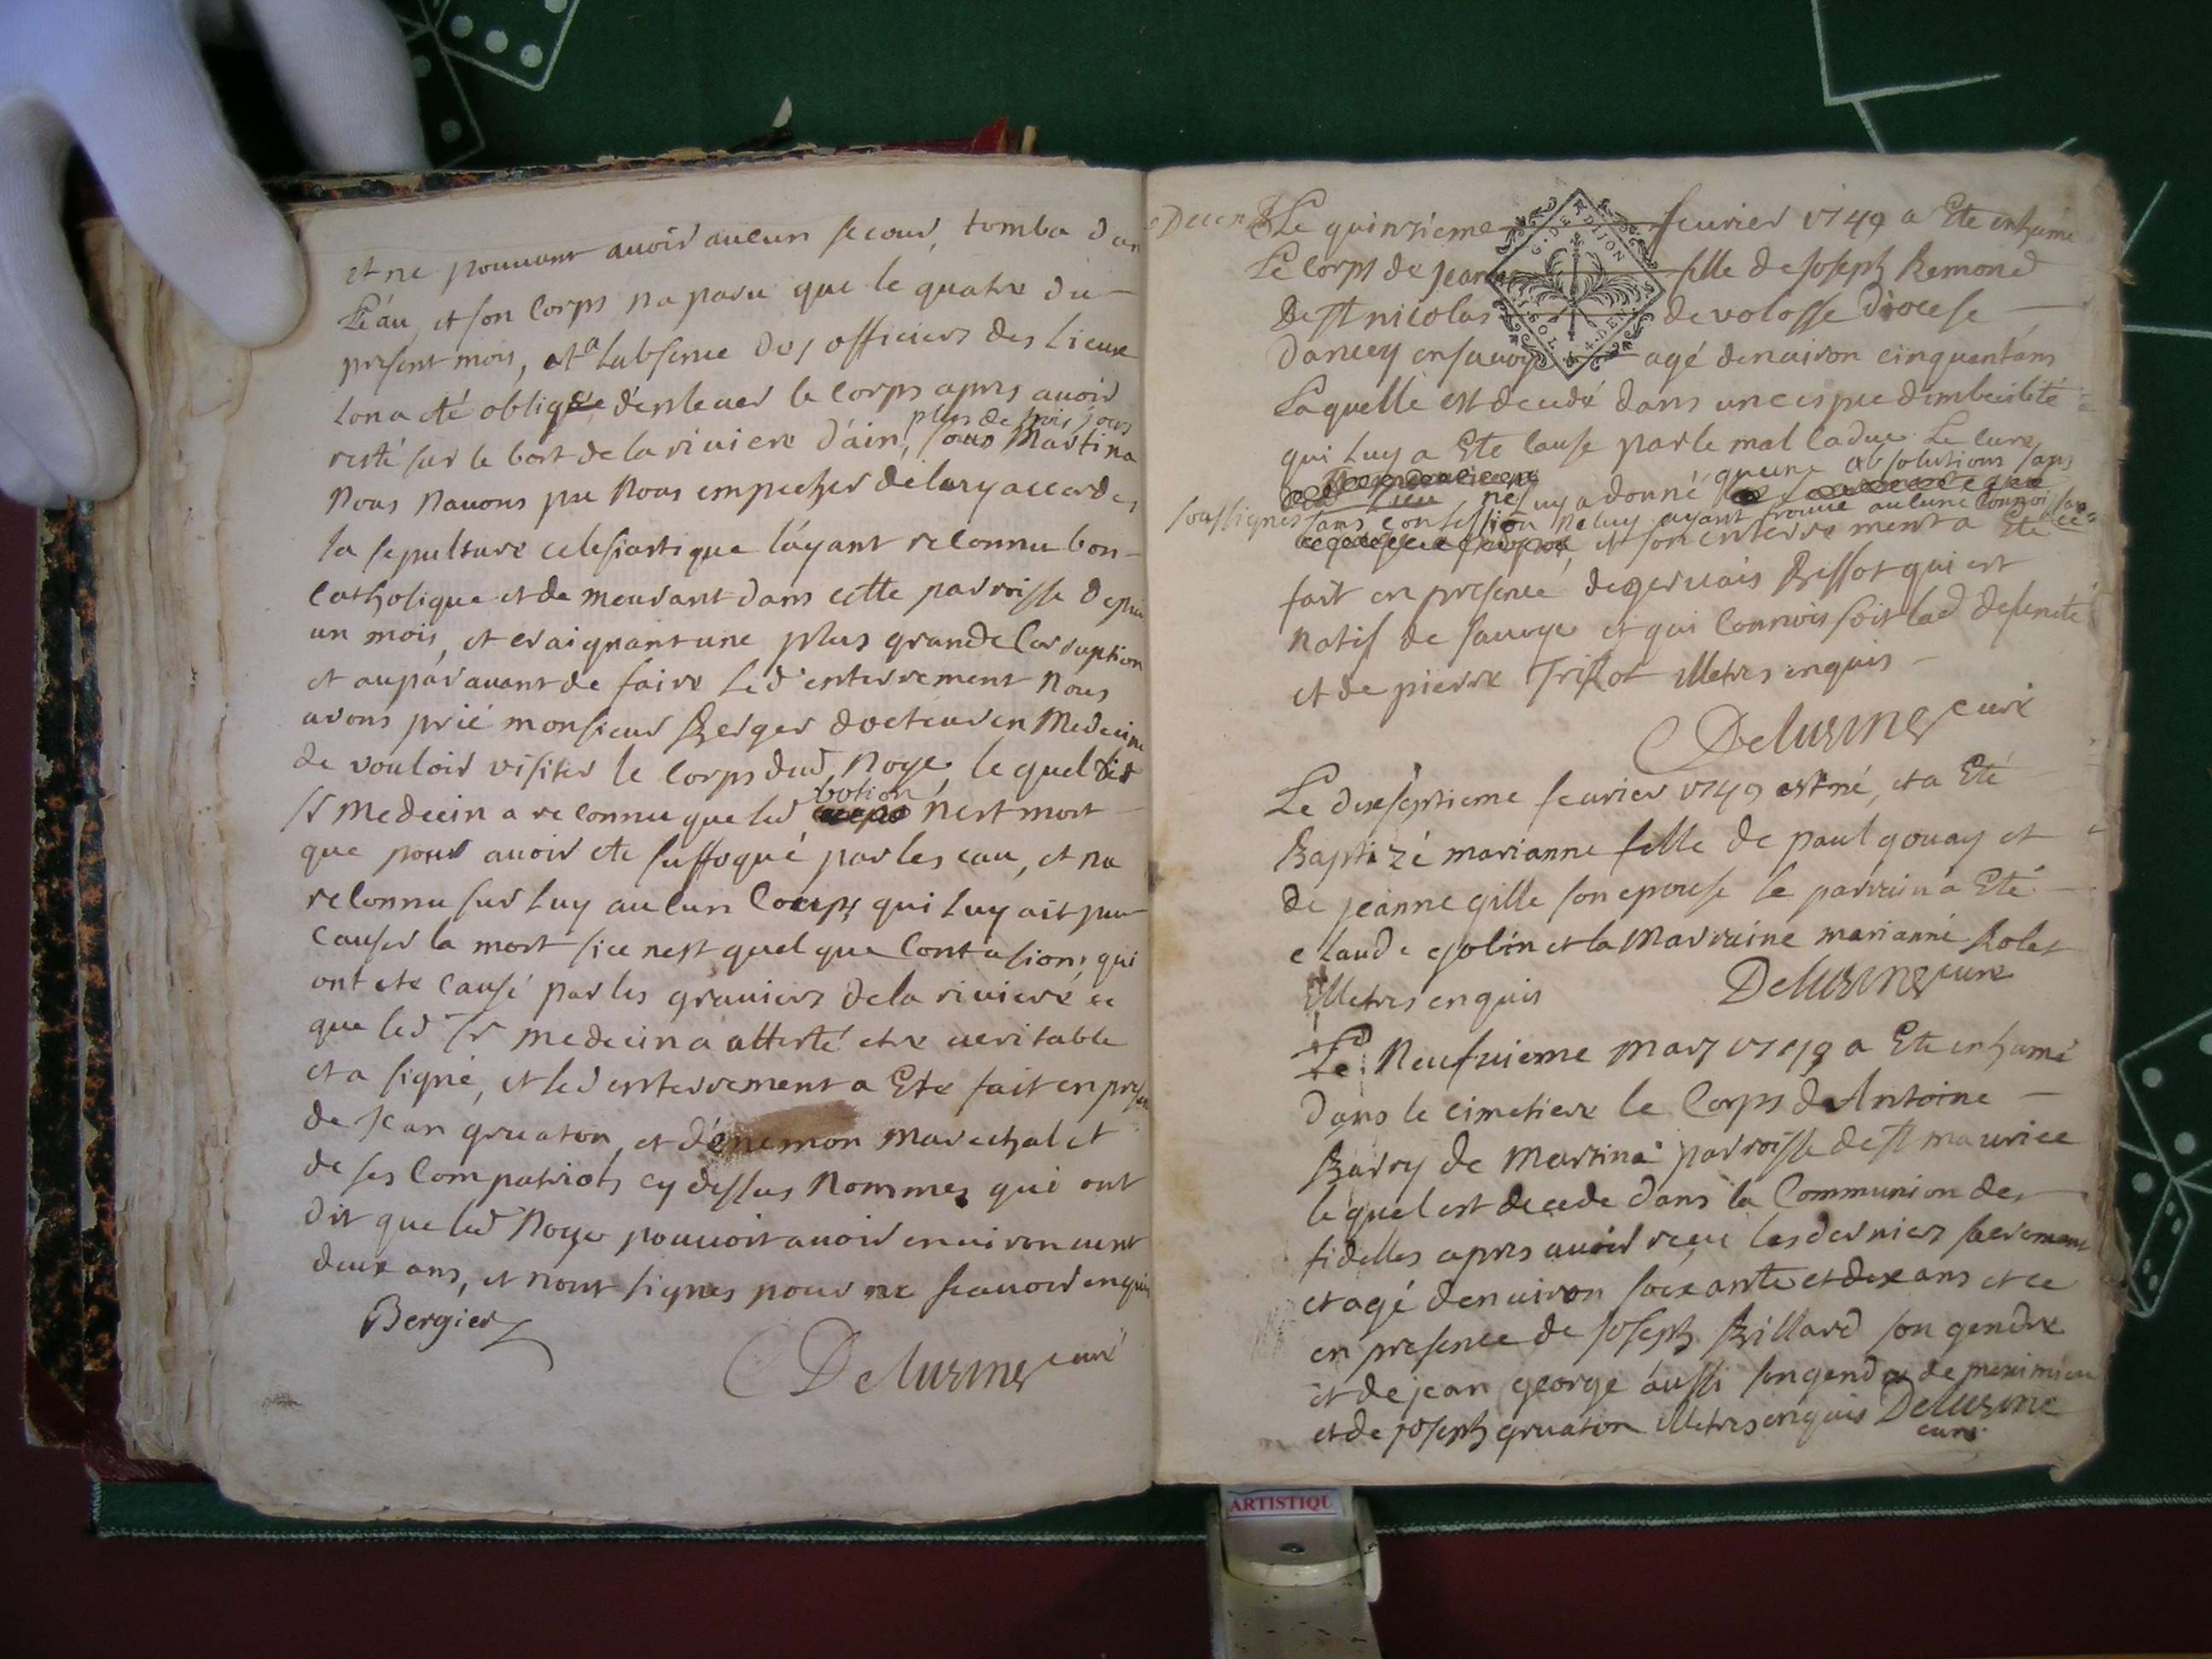 et ne pouvant avoir aucun secour, tomba dan
L'éau, et son Corps na paru que le quatre du
present mois, et a Labsence des officiers des Lieux
Lon a eté obligée d'enlever le corps apres avoir
plus de trois jours
resté sur le bort de la riviere d'ain, sous Martina
Nous Navons pu Nous empecher de luy accorder
la sepulture eclesiastique l'áyant reconnu bon
Catholique et demeurant dans cette parroisse depui
un mois, et craignant une plus grande Corruption
et auparavant de faire Led enterrement Nous
avons prié monsieur Berger docteur en Medecine
de vouloir visiter le Corps dud Noyé, le quel dit
botion
sr Medecin a reconnu que led n'est mort
que pour avoir eté suffoqué par les eau, et na
reconnu sur Luy aucun Coups qui Luy ait pu
Causer la mort si ce nest quelque Contusions qui
ont eté Causé par les graviers de la riviere ce
que led sr medecin a attesté etre veritable
et a signé, et led enterrement a Eté fait en presen
de Jean gruaton, et d'énemon Marechal et
de ses Compatriots cy dessus Nommez qui ont
dit que led Noyé pouvoit avoir environ vint
deux ans, et nont signes pour ne scavoir enquis
Bergier
Deluzine curé
Le quinzieme fevrier 1749 a Eté inhumé
Le Corps de Jeanne fille de Joseph Remond
De St nicolas de volosse Diocese
Dancy en savoye agé denviron cinquant ans
Laquelle est decedé dans une espece dimbecilité
qui Luy a Eté Cause par le mal caduc Le curé
quune absolutions sans
ne Luy a donné
soussignes sans confession ne luy ayant trouvé aucune Connoissan
ce
et son enterrement a Eté
fait en presence de gervais Bessot qui est
Natif de savoye et qui Connoissoit lad defuncte
et de pierre Trikot illetres enquis
Deluzine curé
Le dixseptieme fevrier 1749 est né, et a Eté
Baptizé marianne fille de paul gouay et
de jeanne gille son epouse le parrain a Eté
claude Jolin et la Marraine marianne Rolet
illetres enquis Deluzine curé
Le Neufvieme mars 1749 a Eté inhumé
dans le cimetiere le Corps d'Antoine
Barry de Martina parroisse de St maurice
le quel est decede dans la Communion des
fidelles apres avoir reçu les derniers sacremens
et agé denviron soixante et dix ans et ce
en presence de Joseph Billard son gendre
et de jean george aussi son gendre de meximieu
et de joseph gruaton illetres enquis Deluzine
curé
ARTISTIQU